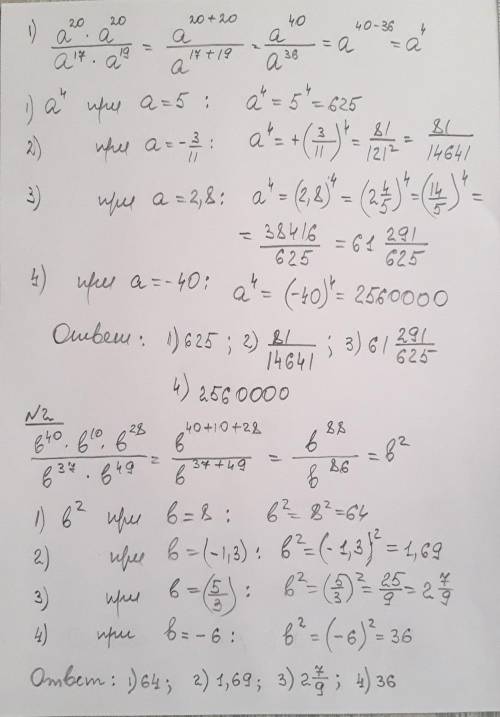 1) a^20 · a^20 / a^17 · a^19 = a^20+20 / a^17+19 = a^40 / a^36 = a^40-36 = a^4
1) a^4 при a = 5 : a^4 = 5^4 = 625
2) при a = -3/11 : a^4 = +(3/11)^4 = 81/121^2 = 81/14641
3) при a = 2,8 : a^4 = (2,8)^4 = (2 4/5)^4 = (14/5)^4 =
= 38416/625 = 61 291/625
4) при a = -40 : a^4 = (-40)^4 = 2560000
Ответ : 1) 625 ; 2) 81/14641 ; 3) 61 291/625
4) 2560000
N2
b^40 · b^10 · b^28 / b^37 · b^49 = b^40+10+28 / b^37+49 = b^88 / b^86 = b^2
1) b^2 при b = 8 : b^2 = 8^2 = 64
2) при b = (-1,3) : b^2 = (-1,3)^2 = 1,69
3) при b = (5/3) : b^2 = (5/3)^2 = 25/9 = 2 7/9
4) при b = -6 : b^2 = (-6)^2 = 36
Ответ : 1) 64 ; 2) 1,69 ; 3) 2 7/9 ; 4) 36